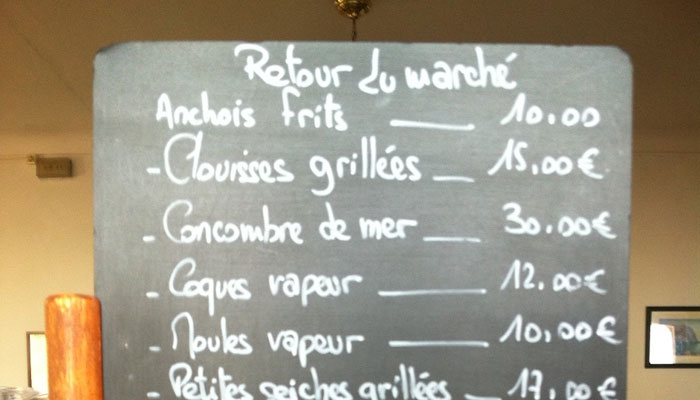 Retour du marché
Anchois frits ____ 10.00
- Clouisses grillées __ 15.00€
- Concombre de mer ___ 30.00€
- Coques vapeur _____ 12.00€
- Moules vapeur _____ 10,00€
- Petites seiches grillées _ 17,00€